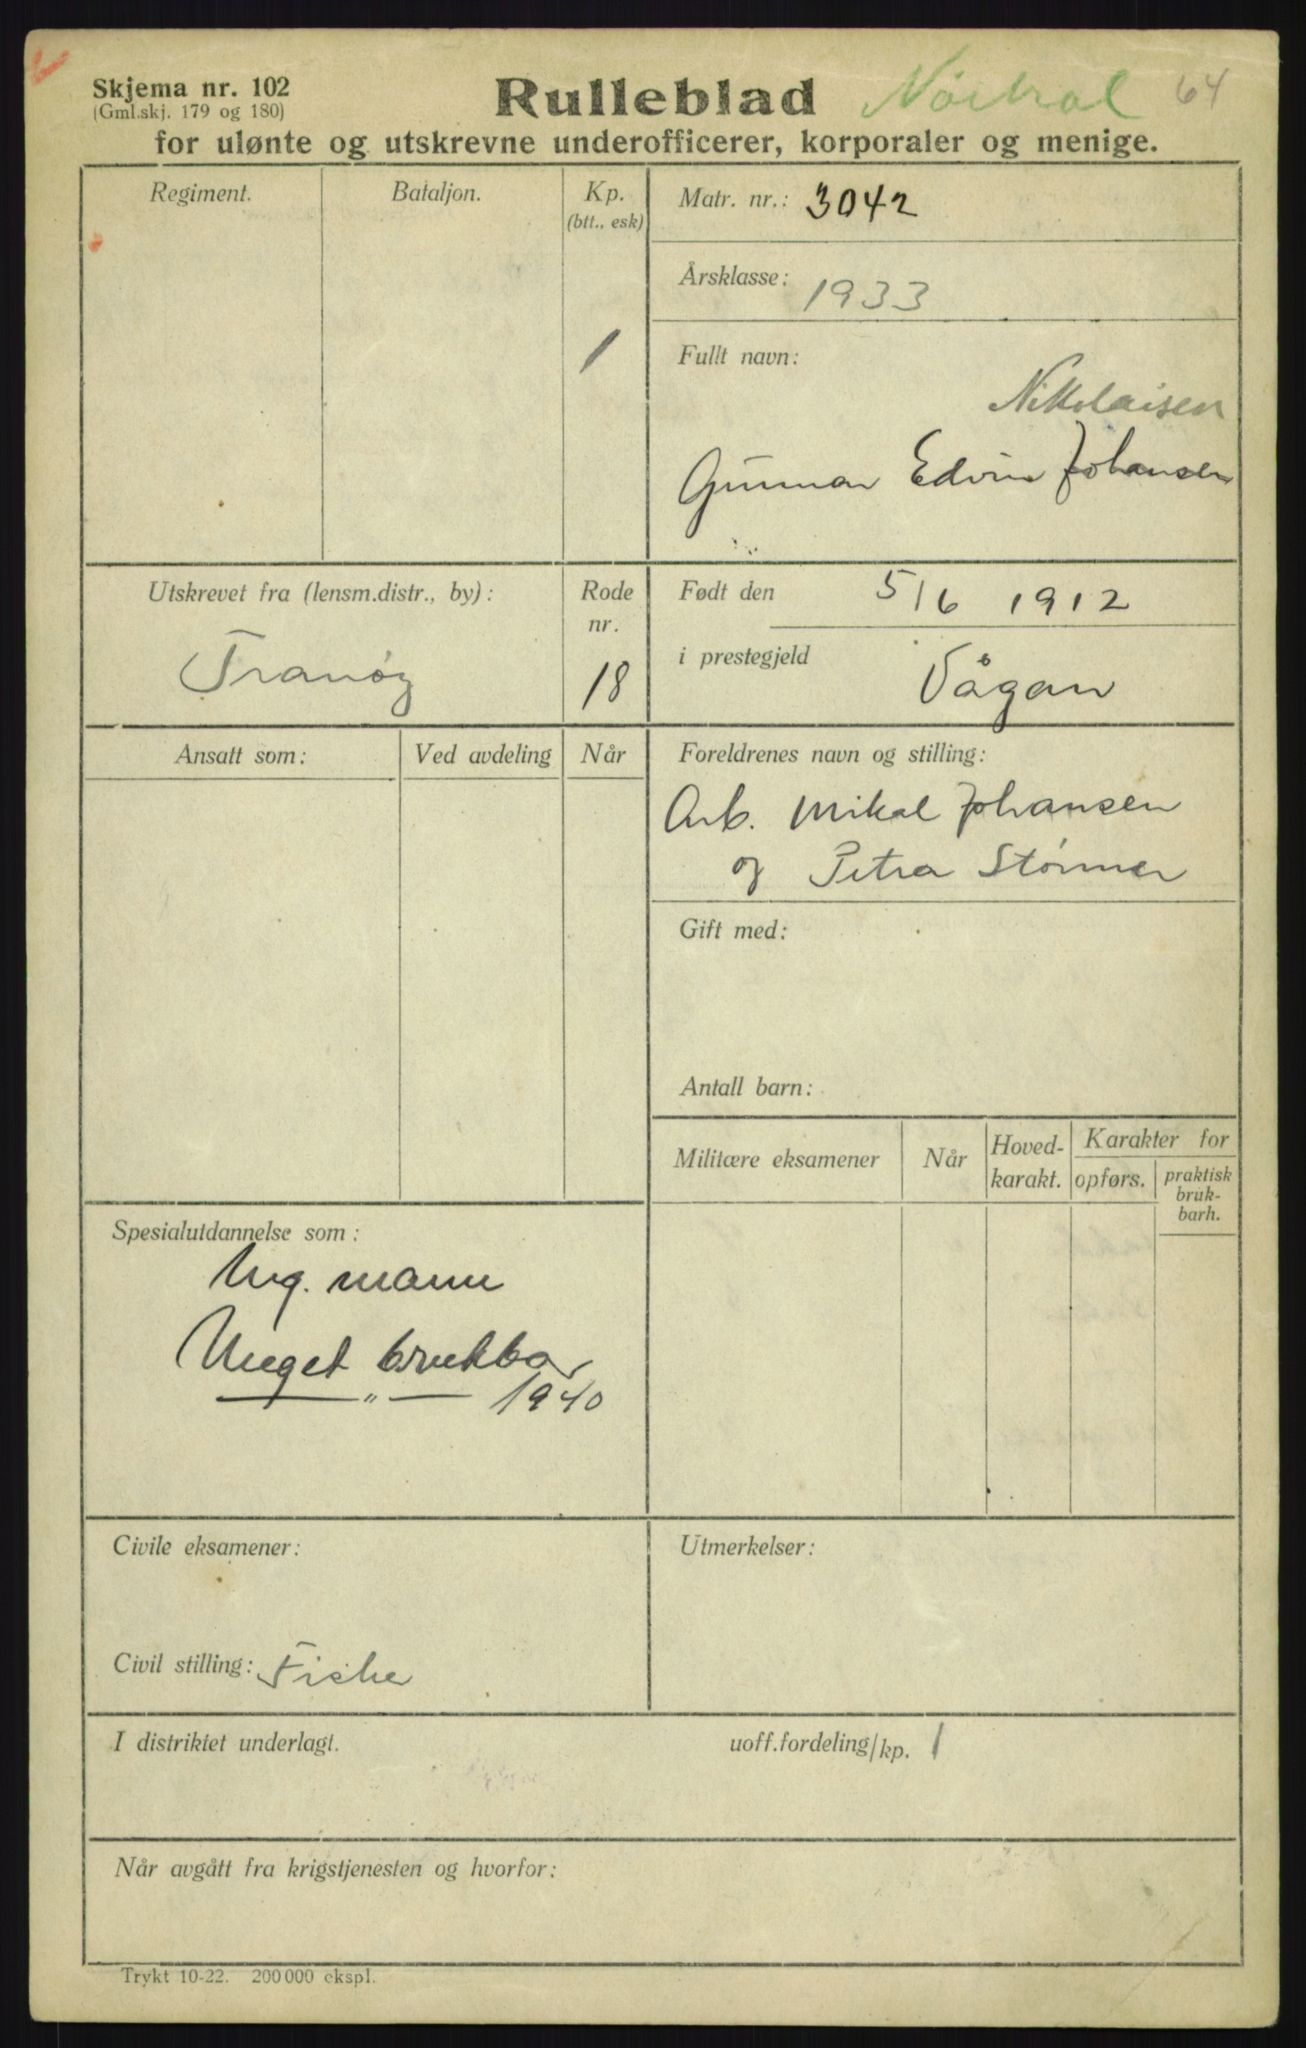 Skjema nr. 102
(Gml.skj. 179 og 180)
Rulleblad
Nöitral
64
for ulønte og utskrevne underofficerer, korporaler og menige.
Regiment.
Bataljon.
Kp.
(btt., esk)
1
Matr. nr.: 3042
Årsklasse: 1933
Fullt navn:
Nikolaisen
Gunnar Edvin Johansen
Utskrevet fra (lensm.distr., by):
Tranøy
Rode
nr.
18
Født den 5/6 1912
i prestegjeld Vågan
Ansatt som:
Ved avdeling
Når
Foreldrenes navn og stilling:
Arb. Mikal Johansen
og Petra Størmer
Gift med:
Antall barn:
Militære eksamener
Når
Hoved-
karakt.
Karakter for
opførs.
praktisk
bruk-
barh.
Spesialutdannelse som:
Mg. mann
Meget brukbar
— " — 1940
Civile eksamener:
Civil stilling: Fisker
Utmerkelser:
I distriktet underlagt.
uoff.fordeling/kp. 1
Når avgått fra krigstjenesten og hvorfor:
Trykt 10-22. 200 000 ekspl.